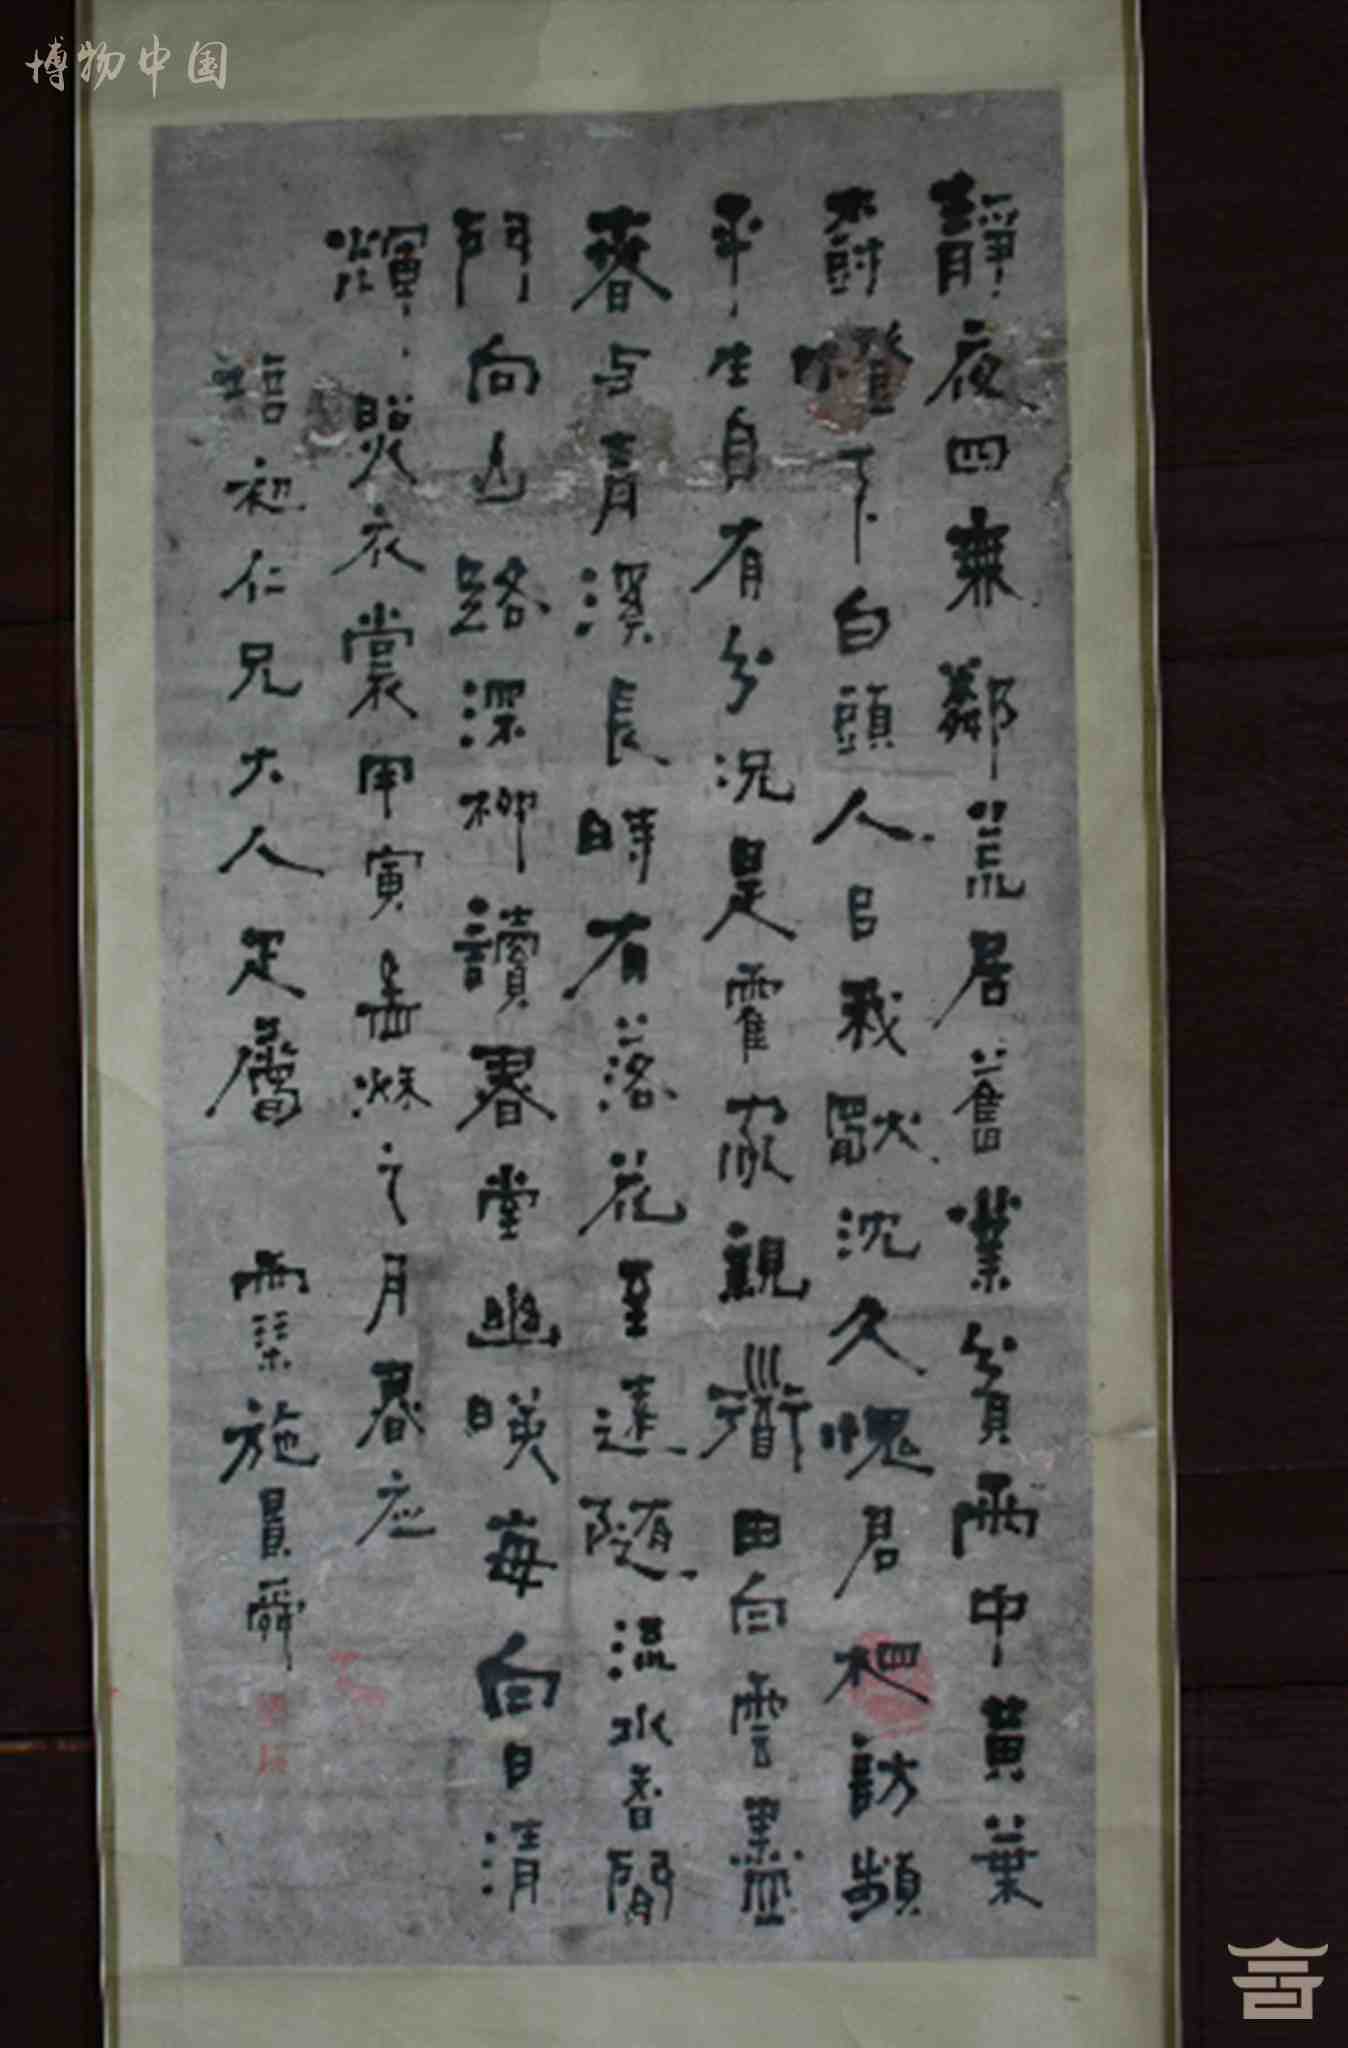 博物中国
靜夜四無鄰荒居舊業貧雨中黃葉
樹燈下白頭人以我獨沈久愧君相訪頻
平生自有分況是霍家親道由白雲盡
春与青溪長時有落花至遠隨流水香閒
門向山路深柳讀書堂幽映每白日清
輝輝照衣裳甲寅孟秋之月書应
語初仁兄大人疋屬 雲栞施景舜